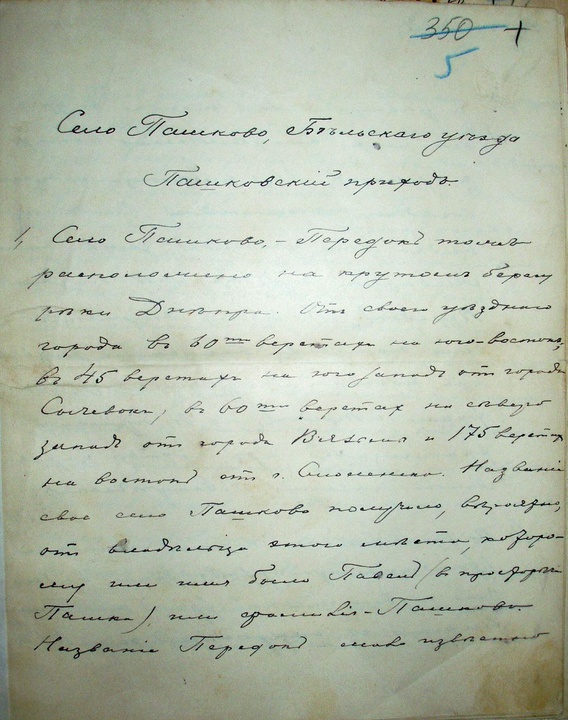 350 +
5
Село Пашково, Бѣльскаго уѣзда
Пашковскій приходъ.
1, Село Пашково, - Передокъ тожъ
расположено на крутомъ берегу
рѣки Днѣпра. Отъ своего уѣзднаго
города въ 60ти верстахъ на юго-востокъ,
въ 45 верстахъ на юго западъ отъ города
Сычевки, въ 60ти верстахъ на сѣверо
западъ отъ города Вязьмы и 175 верстъ
на востокъ отъ г. Смоленска. Названіе
свое село Пашково получило, вѣроятно,
отъ владѣльца этого мѣста, которо-
му или имя было Павелъ (въ просторѣчіи
Пашка), или фамилія - Пашковъ.
Названіе Передокъ мало извѣстно